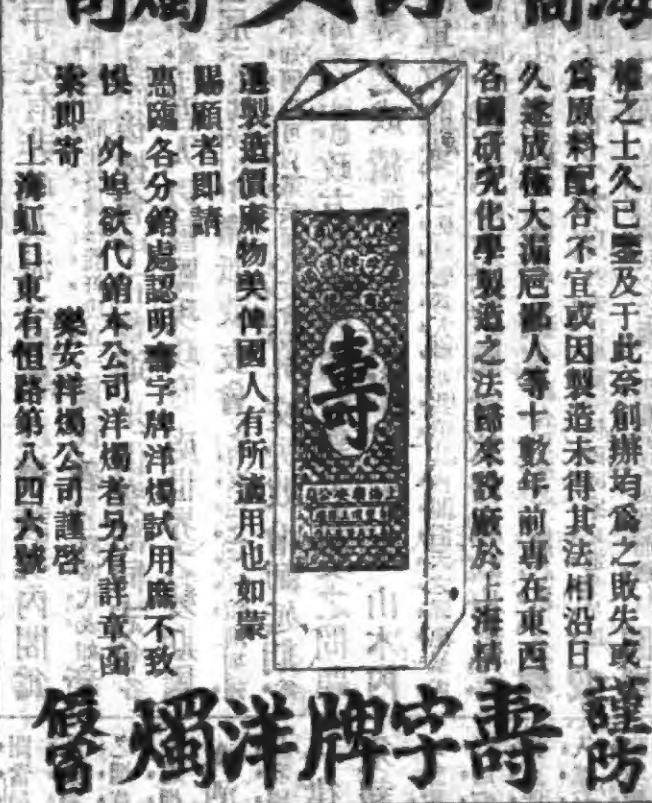 權之士久已鑒及于此奈創辦均爲之敗失或
爲原料配合不宜或因製造未得其法相沿日
久遂成極大漏巵鄙人等十數年前專在東西
各國研究化學製造之法歸來設廠於上海精
選製造價廉物美俾國人有所適用也如蒙
賜顧者即請
惠臨各分銷處認明壽字牌洋燭試用庶不致
悞 外埠欲代銷本公司洋燭者另有詳章函
索即寄 樂安祥燭公司謹啓
上海虹口東有恒路第八四六號
壽
謹防
壽字牌洋燭
假冒